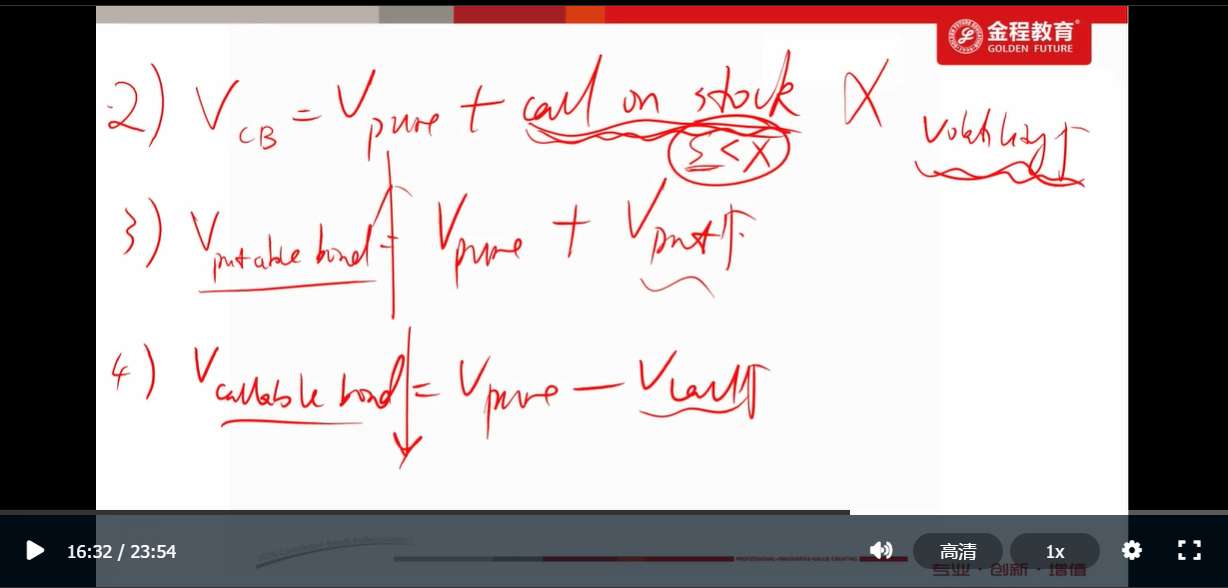 金程教育
GOLDEN FUTURE
2) V CB = V pure + call on stock X
S < X
Volatility↑
3) V putable bond = V pure + V put↑
4) V callable bond = V pure — V call↑
16:32 / 23:54
高清
1x
专业·创新·增值